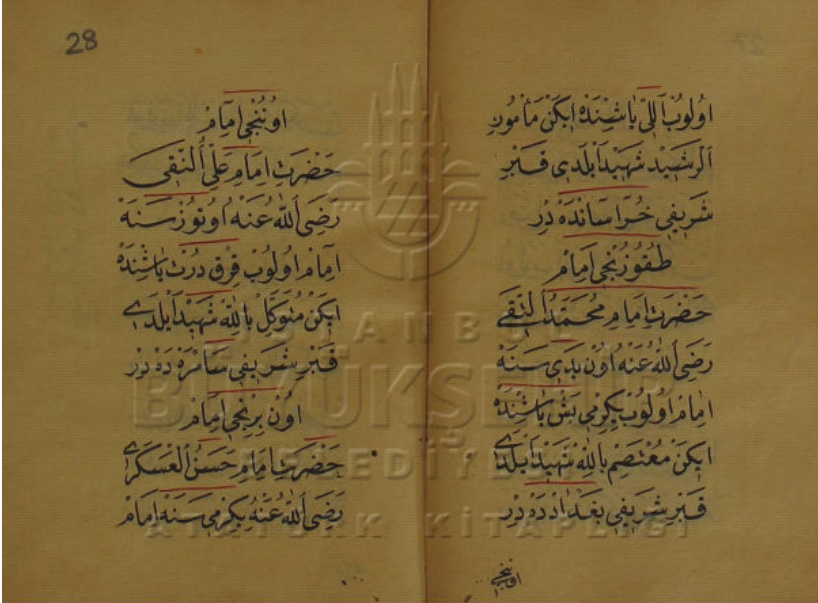 اولوب اللى ياشنده ايكن مأمون
الرشيد شهيد ايلدى قبر
شريفى خراسانده در
طقوزنجى امام
حضرت امام محمد التقى
رضى الله عنه اون يدى سنه
امام اولوب يكرمى بش ياشنده
ايكن معتصم بالله شهيد ايلدى
قبر شريفى بغدادده در
اوننجى
28
اوننجى امام
حضرت امام على النقى
رضى الله عنه اوتوز سنه
امام اولوب قرق درت ياشنده
ايكن متوكل بالله شهيد ايلدى
قبر شريفى سامره ده در
اون برنجى امام
حضرت امام حسن العسكرى
رضى الله عنه يكرمى سنه امام
İSTANBUL
BÜYÜKŞEHİR
BELEDİYESİ
ATATÜRK KİTAPLIĞI